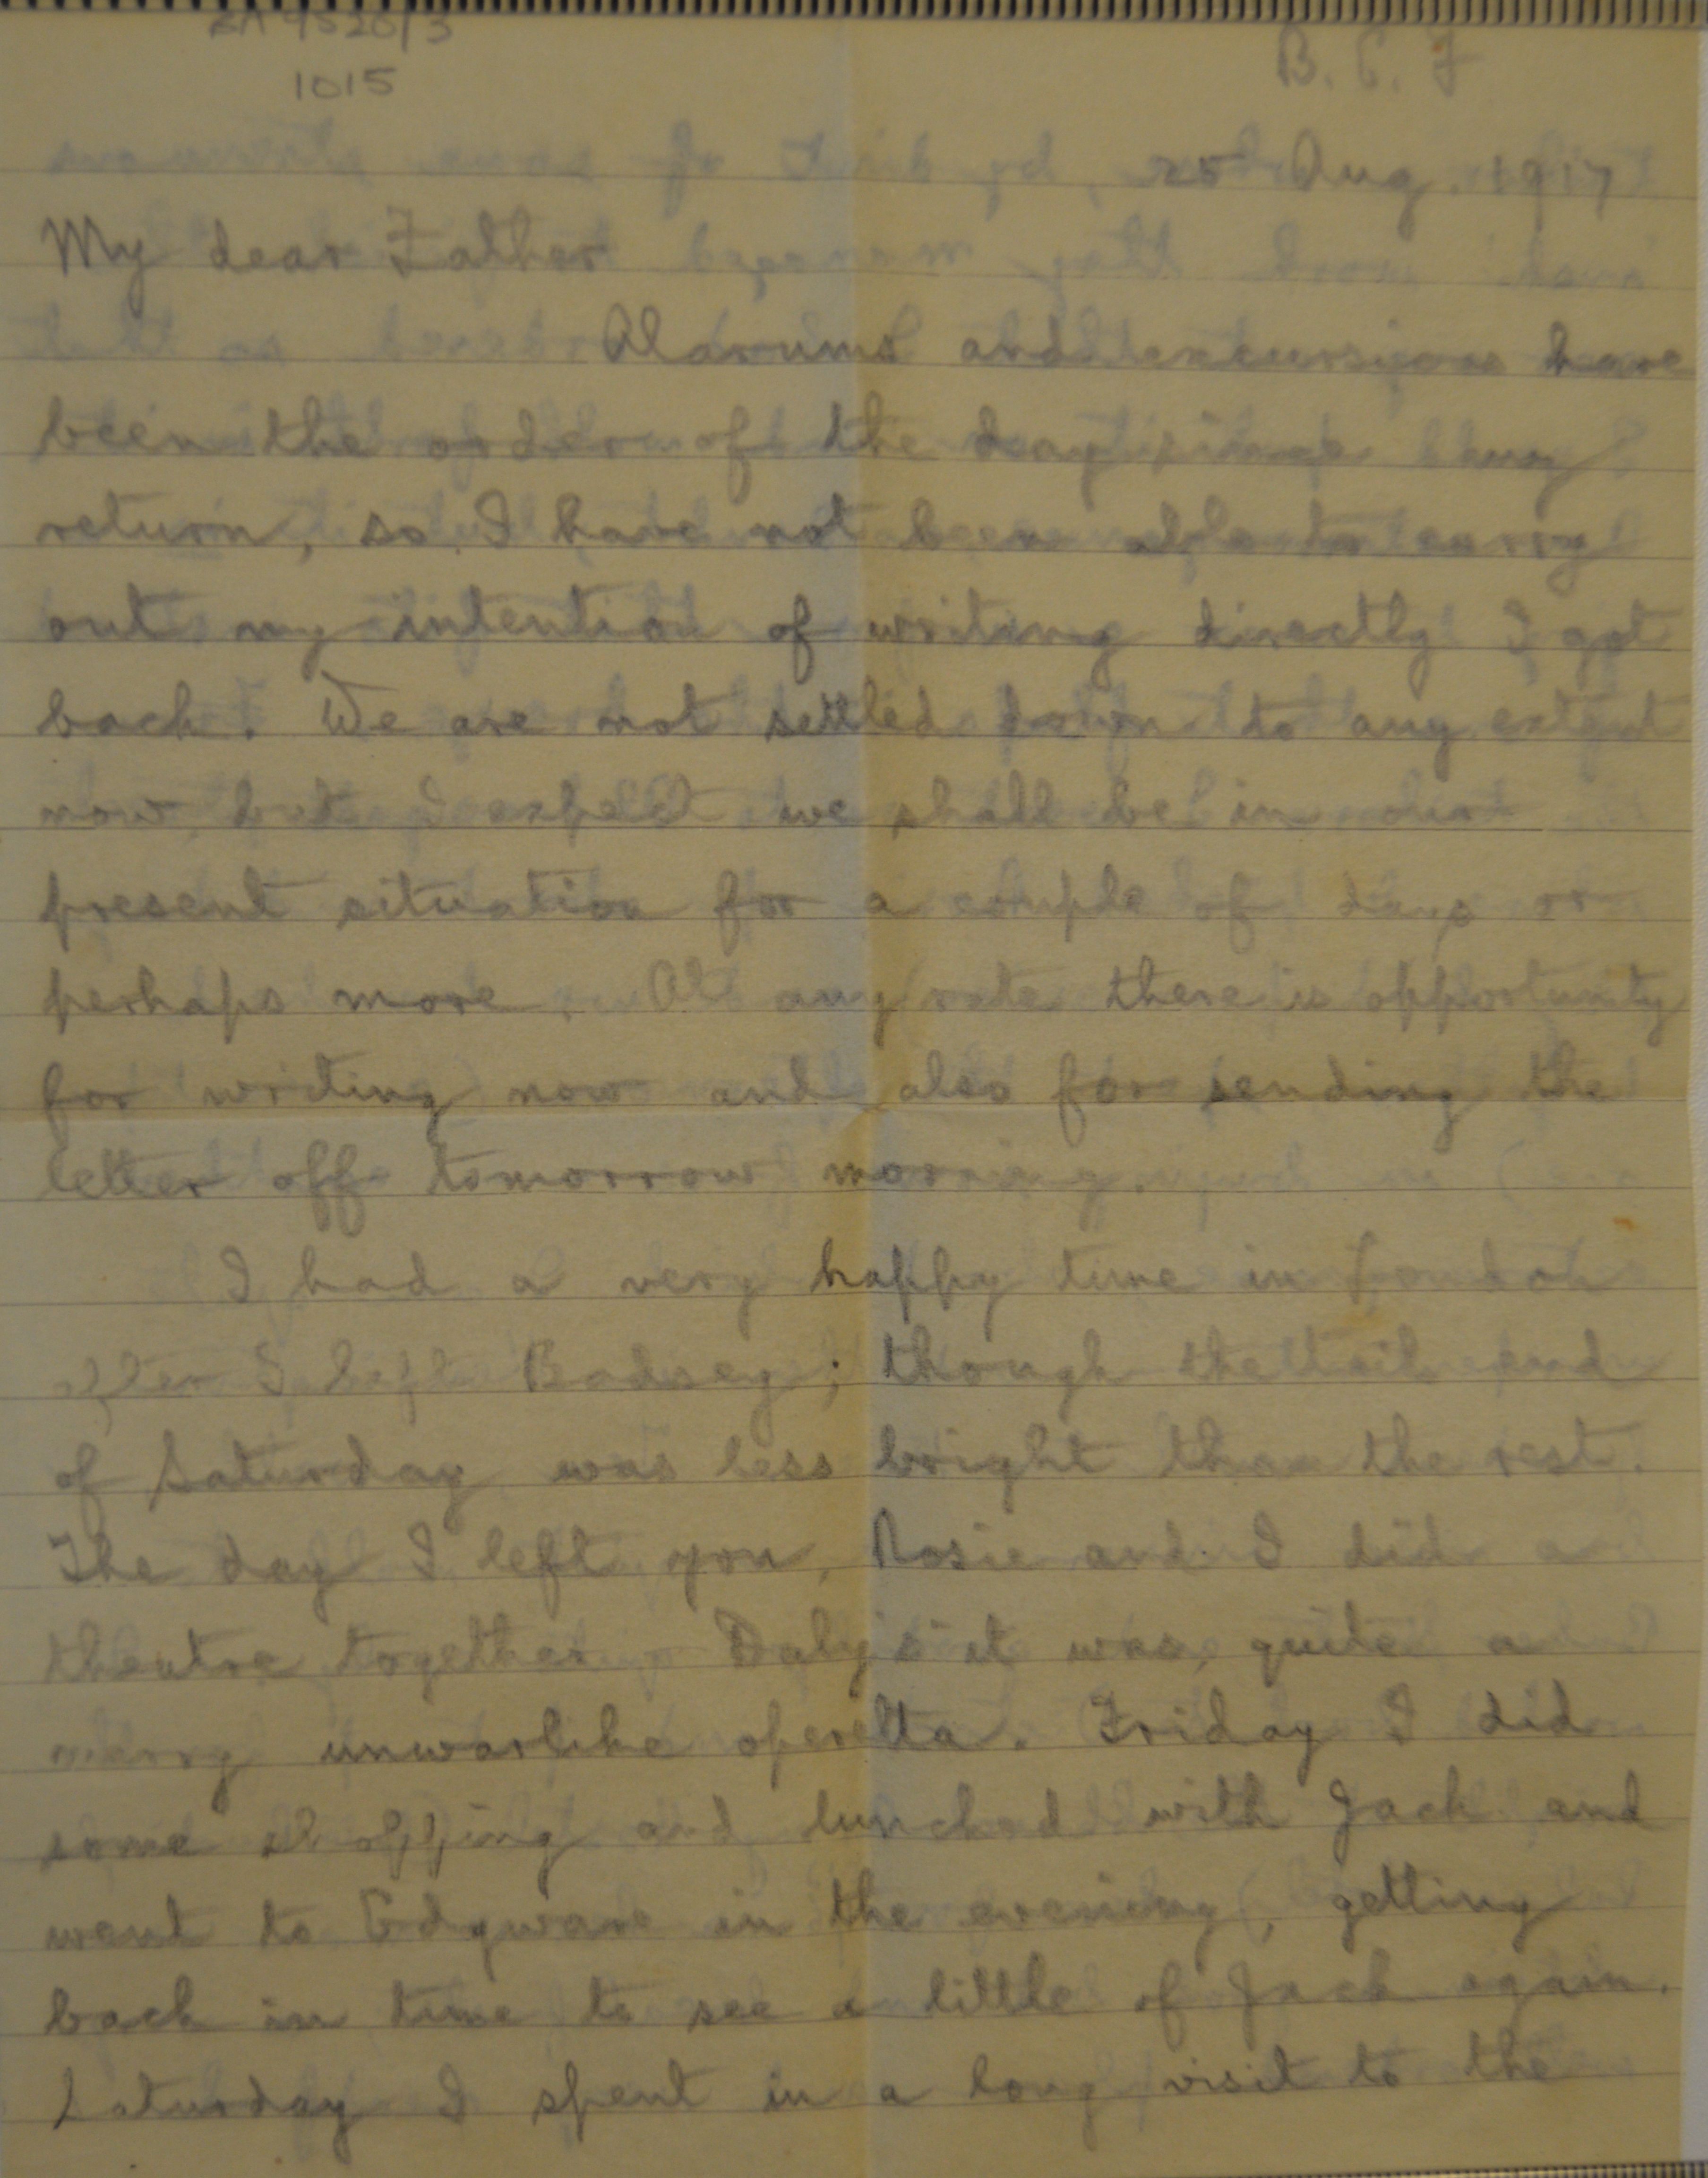 BA 9520/3
1015
B. E. F
25 Aug. 1917
My dear Father
Alarums and excursions have
been the order of the day since my
return, so I have not been able to carry
out my intention of writing directly I got
back. We are not settled down to any extent
now, but I expect we shall be in our
present situation for a couple of days or
perhaps more. At any rate there is opportunity
for writing now and also for sending the
letter off tomorrow morning.
I had a very happy time in London
after I left Badsey; though the tail end
of Saturday was less bright than the rest.
The day I left you, Rosie and I did a
theatre together - Daly's it was, quite a
merry unwarlike operetta. Friday I did
some shopping and lunched with Jack and
went to Edgware in the evening, getting
back in time to see a little of Jack again.
Saturday I spent in a long visit to the